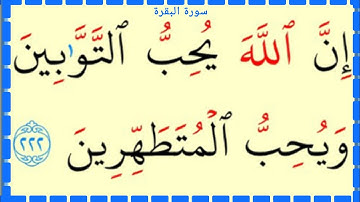 سورة البقرة
إِنَّ ٱللَّهَ يُحِبُّ ٱلتَّوَّٰبِينَ
وَيُحِبُّ ٱلْمُتَطَهِّرِينَ ٢٢٢